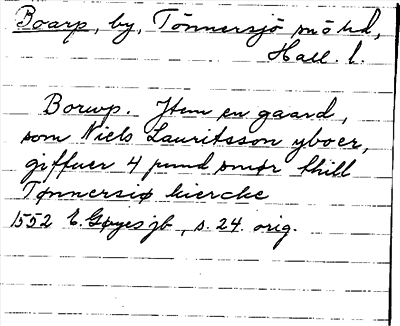 Boarp, by, Tönnersjö snö hd,
Hall. l.
Borup. Jtem en gaard,
som Niels Lauritsson yboer,
giffuer 4 pund smør thill
Tønnersiø kiercke
1552 E. Gøyes jb, s. 24. orig.